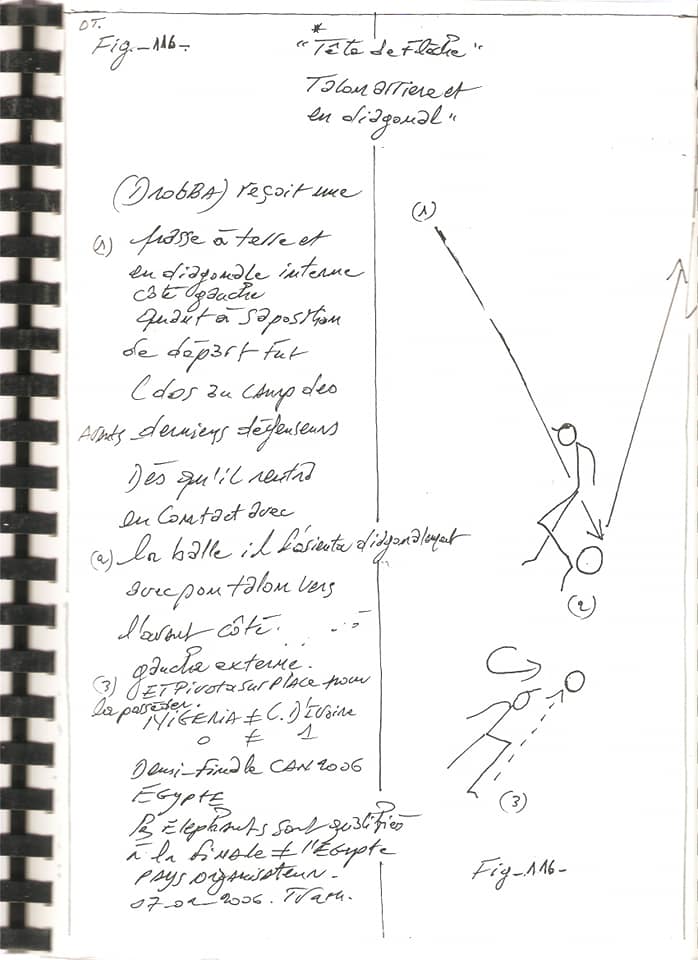 DT.
Fig.-116-
"Tête de Flèche"
Talon arrière et
en diagonal"
(DrobBA) reçoit une
(1) passe à terre et
en diagonale interne
côté gauche
quant à sa position
de départ fut
(dos au camp des
Avants derniers défenseurs
Dès qu'il rentra
en contact avec
(2) la balle il l'orienta diagonalement
avec son talon vers
l'avant côté
gauche externe.
(3) ET Pivota sur PLACE pour
la posséder.
NIGERIA ≠ C. D'Ivoire
0 ≠ 1
Demi-finale CAN 2006
EGYPTE
Les Elephants sont qualifiés
à la finale ≠ l'EGypte
PAYS organisateur.
07-02-2006.
(1)
(2)
(3)
Fig-116-